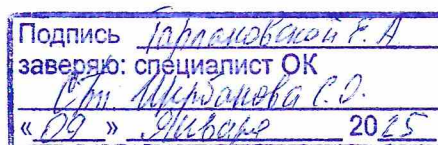 Подпись Тарпановской Е.А
заверяю: специалист ОК
Щербанова С.О.
«09» Января 2025